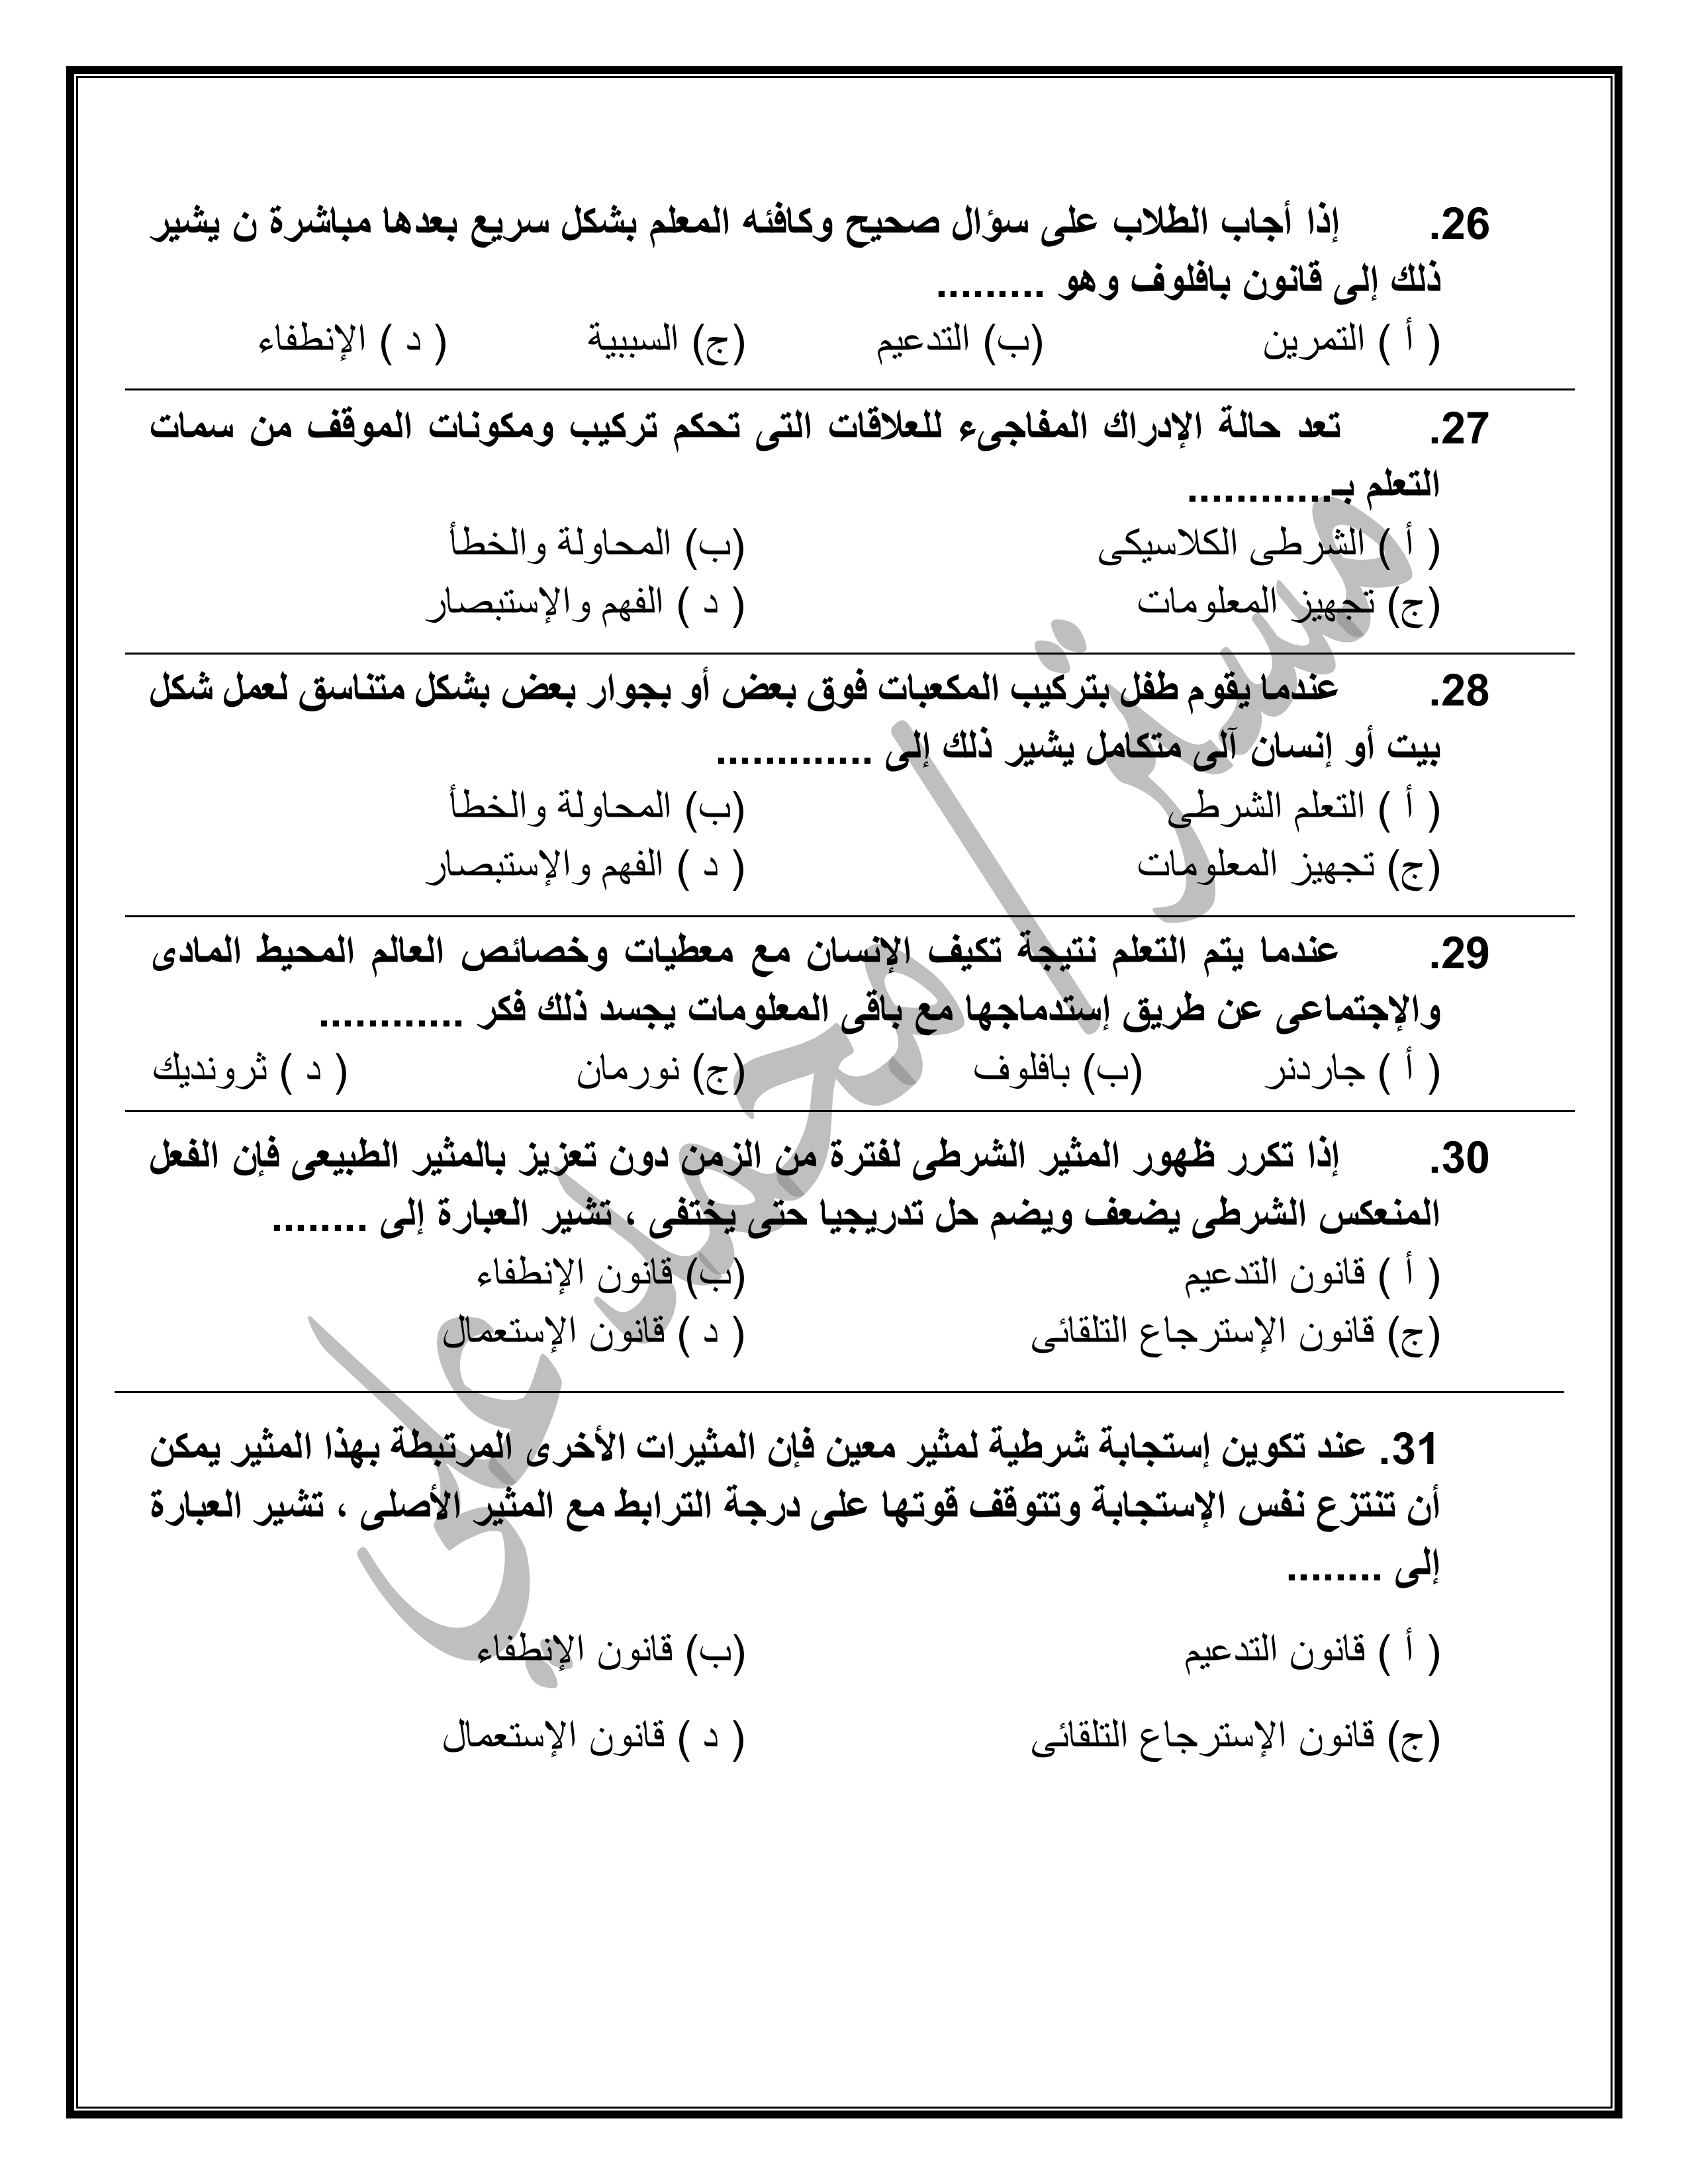 26. إذا أجاب الطلاب على سؤال صحيح وكافئه المعلم بشكل سريع بعدها مباشرة ن يشير
ذلك إلى قانون بافلوف وهو .........
( أ ) التمرين (ب) التدعيم (ج) السببية ( د ) الإنطفاء
27. تعد حالة الإدراك المفاجىء للعلاقات التى تحكم تركيب ومكونات الموقف من سمات
التعلم بـ............
( أ ) الشرطى الكلاسيكى (ب) المحاولة والخطأ
(ج) تجهيز المعلومات ( د ) الفهم والإستبصار
28. عندما يقوم طفل بتركيب المكعبات فوق بعض أو بجوار بعض بشكل متناسق لعمل شكل
بيت أو إنسان آلى متكامل يشير ذلك إلى .............
( أ ) التعلم الشرطى (ب) المحاولة والخطأ
(ج) تجهيز المعلومات ( د ) الفهم والإستبصار
29. عندما يتم التعلم نتيجة تكيف الإنسان مع معطيات وخصائص العالم المحيط المادى
والإجتماعى عن طريق إستدماجها مع باقى المعلومات يجسد ذلك فكر ............
( أ ) جاردنر (ب) بافلوف (ج) نورمان ( د ) ثرونديك
30. إذا تكرر ظهور المثير الشرطى لفترة من الزمن دون تعزيز بالمثير الطبيعى فإن الفعل
المنعكس الشرطى يضعف ويضم حل تدريجيا حتى يختفى ، تشير العبارة إلى ........
( أ ) قانون التدعيم (ب) قانون الإنطفاء
(ج) قانون الإسترجاع التلقائى ( د ) قانون الإستعمال
31. عند تكوين إستجابة شرطية لمثير معين فإن المثيرات الأخرى المرتبطة بهذا المثير يمكن
أن تنتزع نفس الإستجابة وتتوقف قوتها على درجة الترابط مع المثير الأصلى ، تشير العبارة
إلى ........
( أ ) قانون التدعيم (ب) قانون الإنطفاء
(ج) قانون الإسترجاع التلقائى ( د ) قانون الإستعمال
مستر / محمد علي